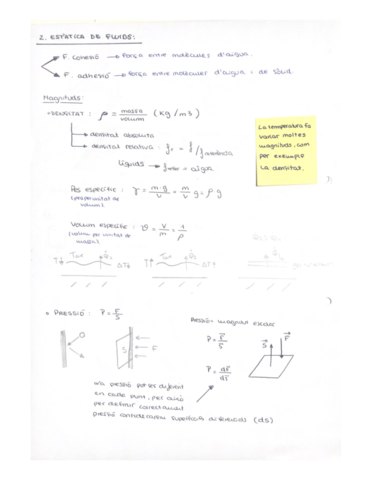 2. ESTÀTICA DE FLUIDS:
F. cohesió → força entre molècules d'aigua.
F. adhesió → força entre molècules d'aigua i de sòlid.
Magnituds:
DENSITAT: ρ = massa / volum (kg/m3)
densitat absoluta
densitat relativa:
Líquids → aigua
La temperatura fa
variar moltes
magnituds, com
per exemple
la densitat.
Pes específic: γ = m·g / v = m / v g = ρ g
(pes per unitat de
volum).
Volum específic: = V / m = 1 / ρ
(volum per unitat de
massa).
T↓ ΔT↓ T↑ ΔT↑
PRESSIÓ: P = F / S
Pressió = magnitud escalar
P = F / S
S F
P = dF / dS
F
S
una pressió pot ser diferent
en cada punt, per això
per definir correctament
pressió considerarem superfícies diferencials (ds)